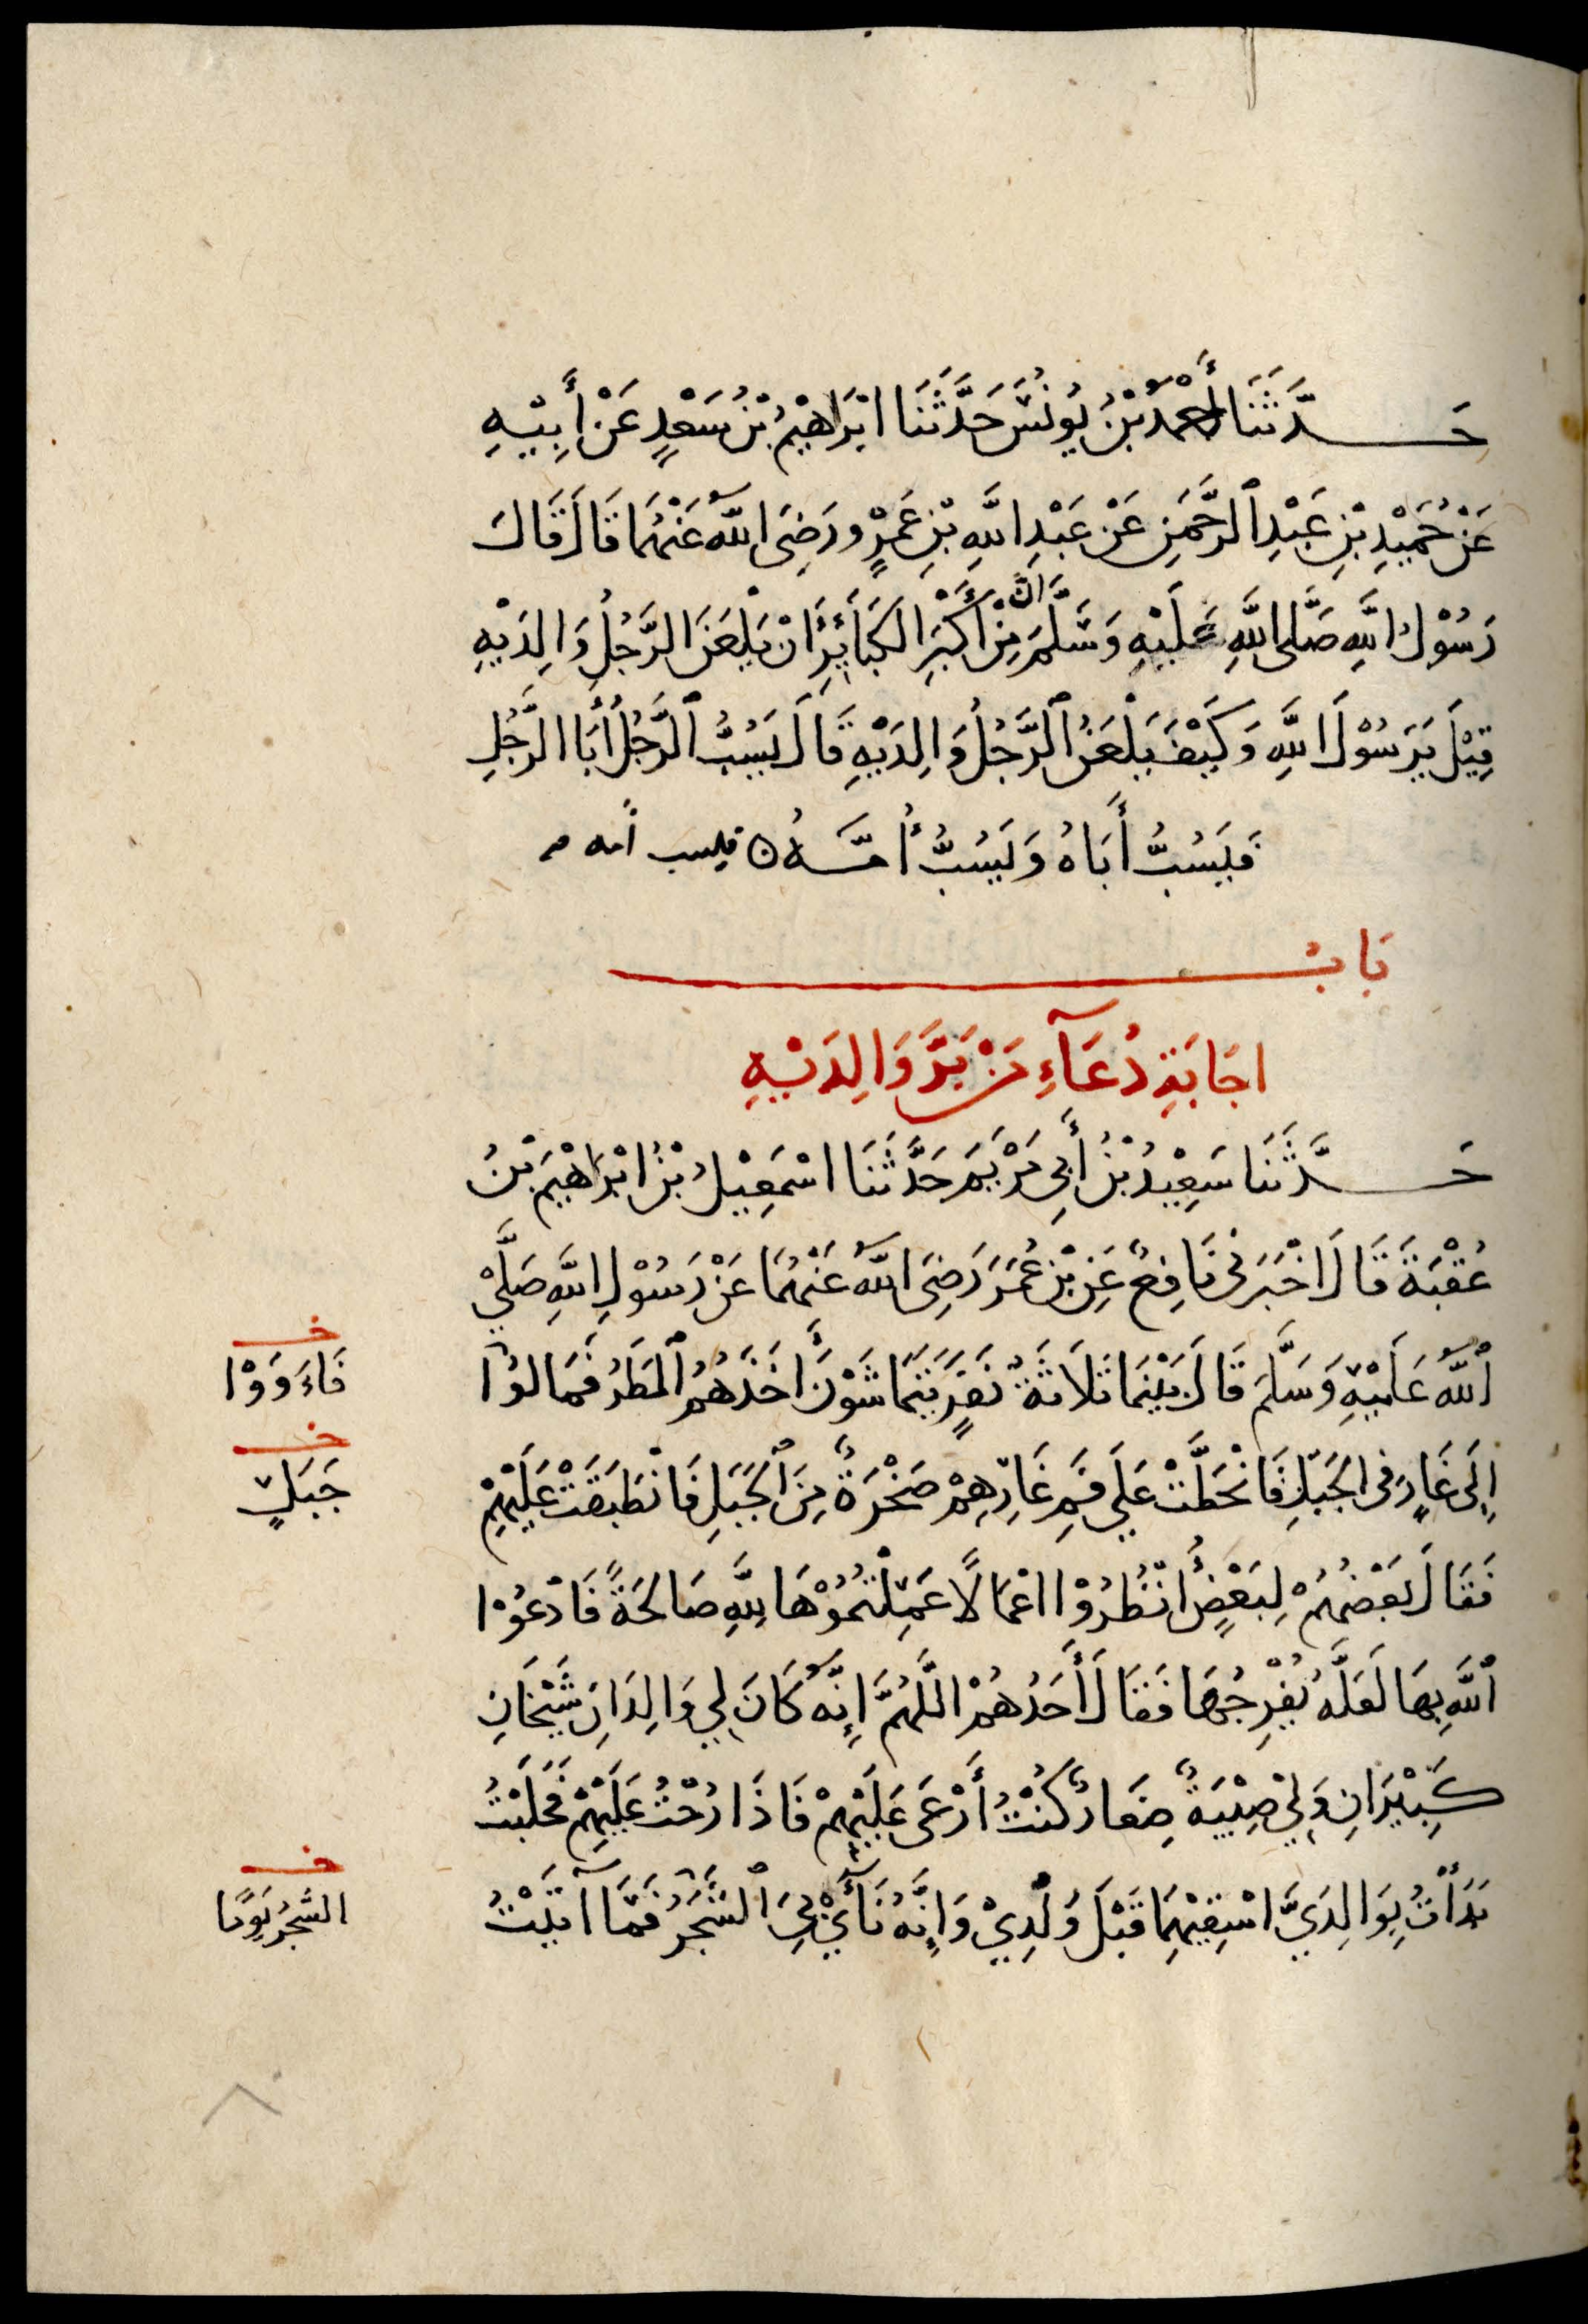 حَدَّثَنَا أَحْمَدُ بْنُ يُونُسَ حَدَّثَنَا ابْرَاهِيْمُ بْنُ سَعْدٍ عَنْ أَبِيْهِ
عَنْ حُمَيْدِ بْنِ عَبْدِ الرَّحْمَنِ عَنْ عَبْدِ اللَّهِ بْنِ عَمْرٍو رَضِىَ اللَّهُ عَنْهُمَا قَالَ قَالَ
رَسُوْلُ اللَّهِ صَلَّى اللَّهُ عَلَيْهِ وَسَلَّمَ انَّ مِنْ أَكْبَرِ الْكَبَائِرِ أَنْ يَلْعَنَ الرَّجُلُ وَالِدَيْهِ
قِيْلَ يَرَسُوْلَ اللَّهِ وَكَيْفَ يَلْعَنُ الرَّجُلُ وَالِدَيْهِ قَالَ يَسُبُّ الرَّجُلُ أَبَا الرَّجُلِ
فَيَسُبُّ أَبَاهُ وَيَسُبُّ أُمَّهُ ۞ فيسب أمه
بَابُ
اجَابَةِ دُعَآءِ مَنْ بَرَّ وَالِدَيْهِ
حَدَّثَنَا سَعِيْدُ بْنُ أَبِى مَرْيَمَ حَدَّثَنَا اسْمَعِيْلُ بْنُ ابْرَاهِيْمَ بْنُ
عُقْبَةَ قَالَ اخْبَرَنِى نَافِعٌ عَنِ بْنِ عُمَرَ رَضِىَ اللَّهُ عَنْهُمَا عَنْ رَسُوْلِ اللَّهِ صَلَّى
اللَّهُ عَلَيْهِ وَسَلَّمَ قَالَ بَيْنَمَا ثَلَاثَةُ نَفَرٍ يَتَمَاشَوْنَ أَخَذَهُمُ الْمَطَرُ فَمَالُوْا
خـ
فَاءَوَوْا
إِلَى غَارٍ فِى الْجَبَلِ فَانْحَطَّتْ عَلَى فَمِ غَارِهِمْ صَخْرَةٌ مِنَ الْجَبَلِ فَانْطَبَقَتْ عَلَيْهِمْ
خـ
جَبَلٍ
فَقَالَ بَعْضُهُمْ لِبَعْضٍ أُنْظُرُوْا اعْمَالًا عَمِلْتُمُوْهَا لِلَّهِ صَالِحَةً فَادْعُوْا
اللَّهَ بِهَا لَعَلَّهُ يُفْرِجُهَا فَقَالَ أَحَدُهُمْ اللَّهُمَّ إِنَّهُ كَانَ لِى وَالِدَانِ شَيْخَانِ
كَبِيْرَانِ وَلِىْ صِبْيَةٌ صِغَارٌ كُنْتُ أَرْعَى عَلَيْهِمْ فَاذَا رُحْتُ عَلَيْهِمْ فَحَلَبْتُ
بَدَأْتُ بِوَالِدَىَّ اسْقِيْهِمَا قَبْلَ وَلَدِىْ وَإِنَّهُ نَآىْ بِىَ الشَّجَرُ فَمَا آتَيْتُ
خـ
الشَّجَرُ يَوْمًا